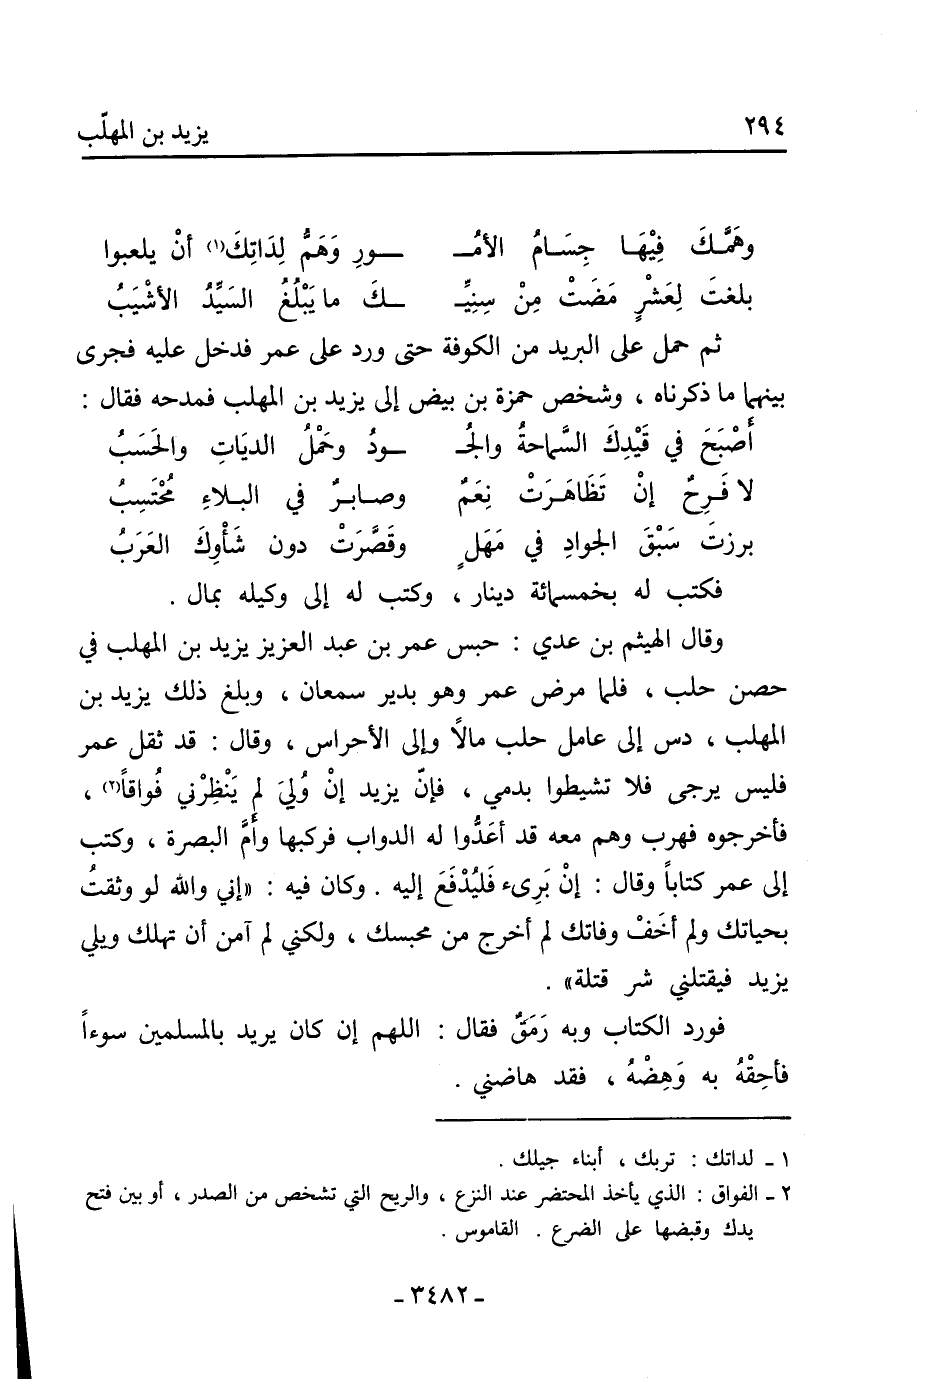 ٢٩٤ يزيد بن المهلّب
وهَمُّكَ فِيْهَا جِسَامُ الأمُـ ـورِ وَهَمُّ لِدَاتِكَ(١) أنْ يلعبوا
بلغتَ لِعَشْرٍ مَضَتْ مِنْ سِنِيِّـ ـكَ ما يَبْلُغُ السَيِّدُ الأشْيَبُ
ثم حمل على البريد من الكوفة حتى ورد على عمر فدخل عليه فجرى
بينهما ما ذكرناه ، وشخص حمزة بن بيض إلى يزيد بن المهلب فمدحه فقال :
أَصْبَحَ في قَيْدِكَ السَّماحةُ والجُـ ـودُ وحَمْلُ الديَاتِ والحَسَبُ
لا فَرِحٌ إنْ تَظَاهَرَتْ نِعَمٌ وصابرٌ في البلاءِ مُحْتَسِبُ
برزتَ سَبْقَ الجوادِ في مَهَلٍ وقَصَّرَتْ دون شَأْوِكَ العَرَبُ
فكتب له بخمسمائة دينار ، وكتب له إلى وكيله بمال .
وقال الهيثم بن عدي : حبس عمر بن عبد العزيز يزيد بن المهلب في
حصن حلب ، فلما مرض عمر وهو بدير سمعان ، وبلغ ذلك يزيد بن
المهلب ، دس إلى عامل حلب مالاً وإلى الأحراس ، وقال : قد ثقل عمر
فليس يرجى فلا تشيطوا بدمي ، فإنّ يزيد إنْ وُليَ لم يَنْظِرْني فُواقاً(٢) ،
فأخرجوه فهرب وهم معه قد أعَدُّوا له الدواب فركبها وأَمَّ البصرة ، وكتب
إلى عمر كتاباً وقال : إنْ بَرِىء فَليُدْفَعَ إليه . وكان فيه : «إني والله لو وثقتُ
بحياتك ولم أخَفْ وفاتك لم أخرج من محبسك ، ولكني لم آمن أن تهلك ويلي
يزيد فيقتلني شر قتلة» .
فورد الكتاب وبه رَمَقٌ فقال : اللهم إن كان يريد بالمسلمين سوءاً
فأحِقْهُ به وَهِضْهُ ، فقد هاضني .
١ ـ لداتك : تربك ، أبناء جيلك .
٢ ـ الفواق : الذي يأخذ المحتضر عند النزع ، والريح التي تشخص من الصدر ، أو بين فتح
يدك وقبضها على الضرع . القاموس .
ـ ٣٤٨٢ ـ